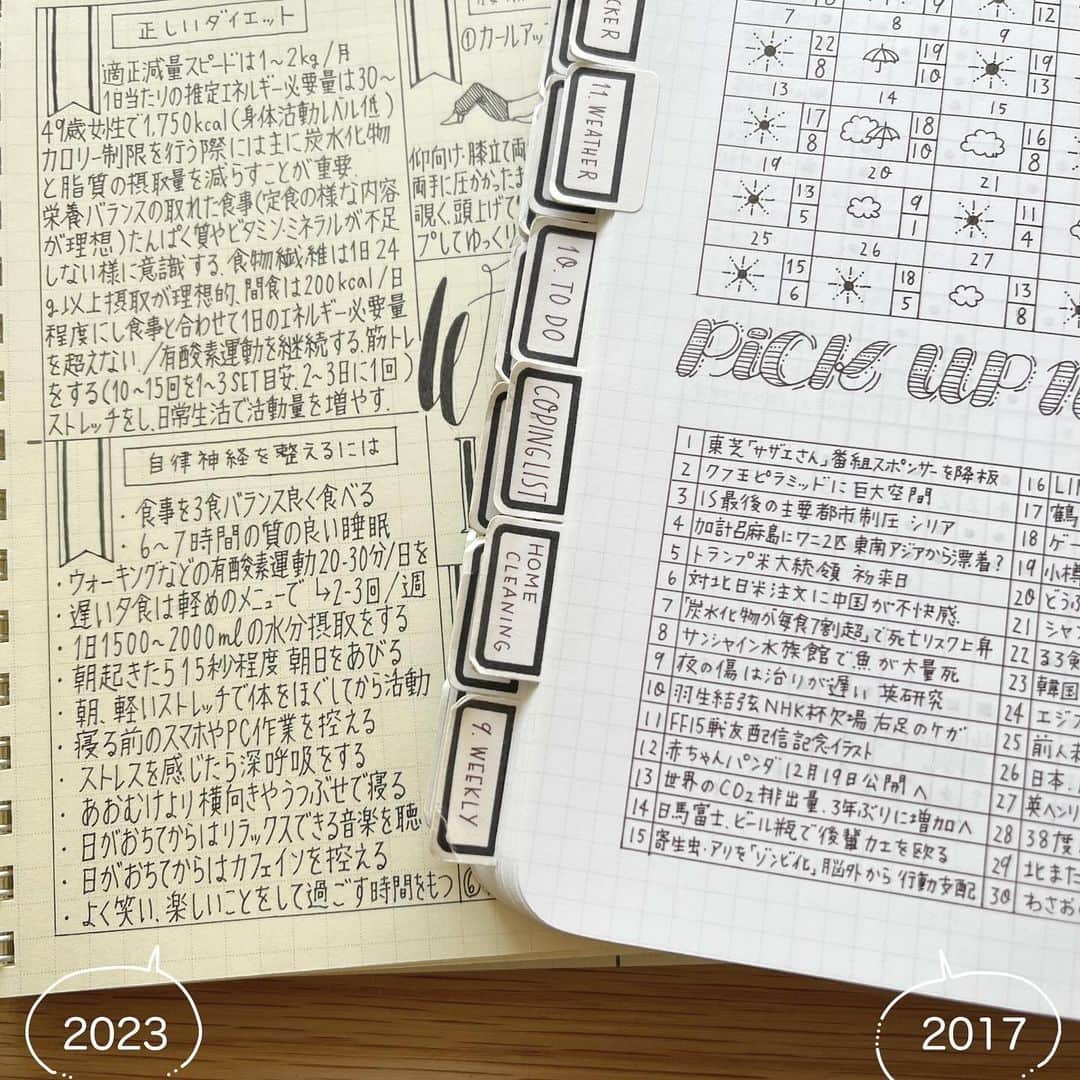 正しいダイエット
適正減量スピードは1〜2kg/月
1日当たりの推定エネルギー必要量は30〜
49歳女性で1,750kcal(身体活動レベル低)
カロリー制限を行う際には主に炭水化物
と脂質の摂取量を減らすことが重要.
栄養バランスの取れた食事(定食の様な内容
が理想)たんぱく質やビタミン・ミネラルが不足
しない様に意識する.食物繊維は1日24
g以上摂取が理想的、間食は200kcal/日
程度にし食事と合わせて1日のエネルギー必要量
を超えない./有酸素運動を継続する.筋トレ
をする(10〜15回を1〜3SET目安、2〜3日に1回)
ストレッチをし、日常生活で活動量を増やす.
①カールアッ
仰向け・膝立て両
両手に圧かかったま
覗く、頭上げて
プしてゆっくり
自律神経を整えるには
・食事を3食バランス良く食べる
・6〜7時間の質の良い睡眠
・ウォーキングなどの有酸素運動20-30分/日を
↳2-3回/週
・遅い夕食は軽めのメニューで
・1日1500〜2000mlの水分摂取をする
・朝起きたら15秒程度 朝日をあびる
・朝、軽いストレッチで体をほぐしてから活動
・寝る前のスマホやPC作業を控える
・ストレスを感じたら深呼吸をする
・あおむけより横向きやうつぶせで寝る
・日がおちてからはリラックスできる音楽を聴
・日がおちてからはカフェインを控える
・よく笑い、楽しいことをして過ごす時間をもつ
⑥
CKER
11. WEATHER
10. TO DO
COPING LIST
HOME
CLEANING
9. WEEKLY
12
7 8 9
22 8 19 10 19 13
13 14 15
17 8 18 10 16 8
19 20 21
13 5 9 1 11 4
25 26 27
15 6 18 5 13 8
PICK UP
1 東芝「サザエさん」番組スポンサーを降板
2 クフ王ピラミッドに巨大空間
3 IS最後の主要都市制圧 シリア
4 加計呂麻島にワニ2匹 東南アジアから漂着?
5 トランプ米大統領 初来日
6 対北日米注文に中国が不快感
7 「炭水化物が毎食7割超」で死亡リスク上昇
8 サンシャイン水族館で魚が大量死
9 夜の傷は治りが遅い 英研究
10 羽生結弦NHK杯欠場 右足のケガ
11 FF15戦友配信記念イラスト
12 赤ちゃんパンダ 12月19日公開へ
13 世界のCO2排出量、3年ぶりに増加へ
14 日馬富士、ビール瓶で後輩力士を殴る
15 寄生虫・アリを「ゾンビ化」脳外から行動支配
16
17 鶴
18 ゲー
19 小樽
20 どうぶ
21 シャン
22 るろ剣
23 韓国
24 エジ
25 前人未
26 日本
27 英ヘンリ
28 38度
29 北また
30 わさお
2023
2017